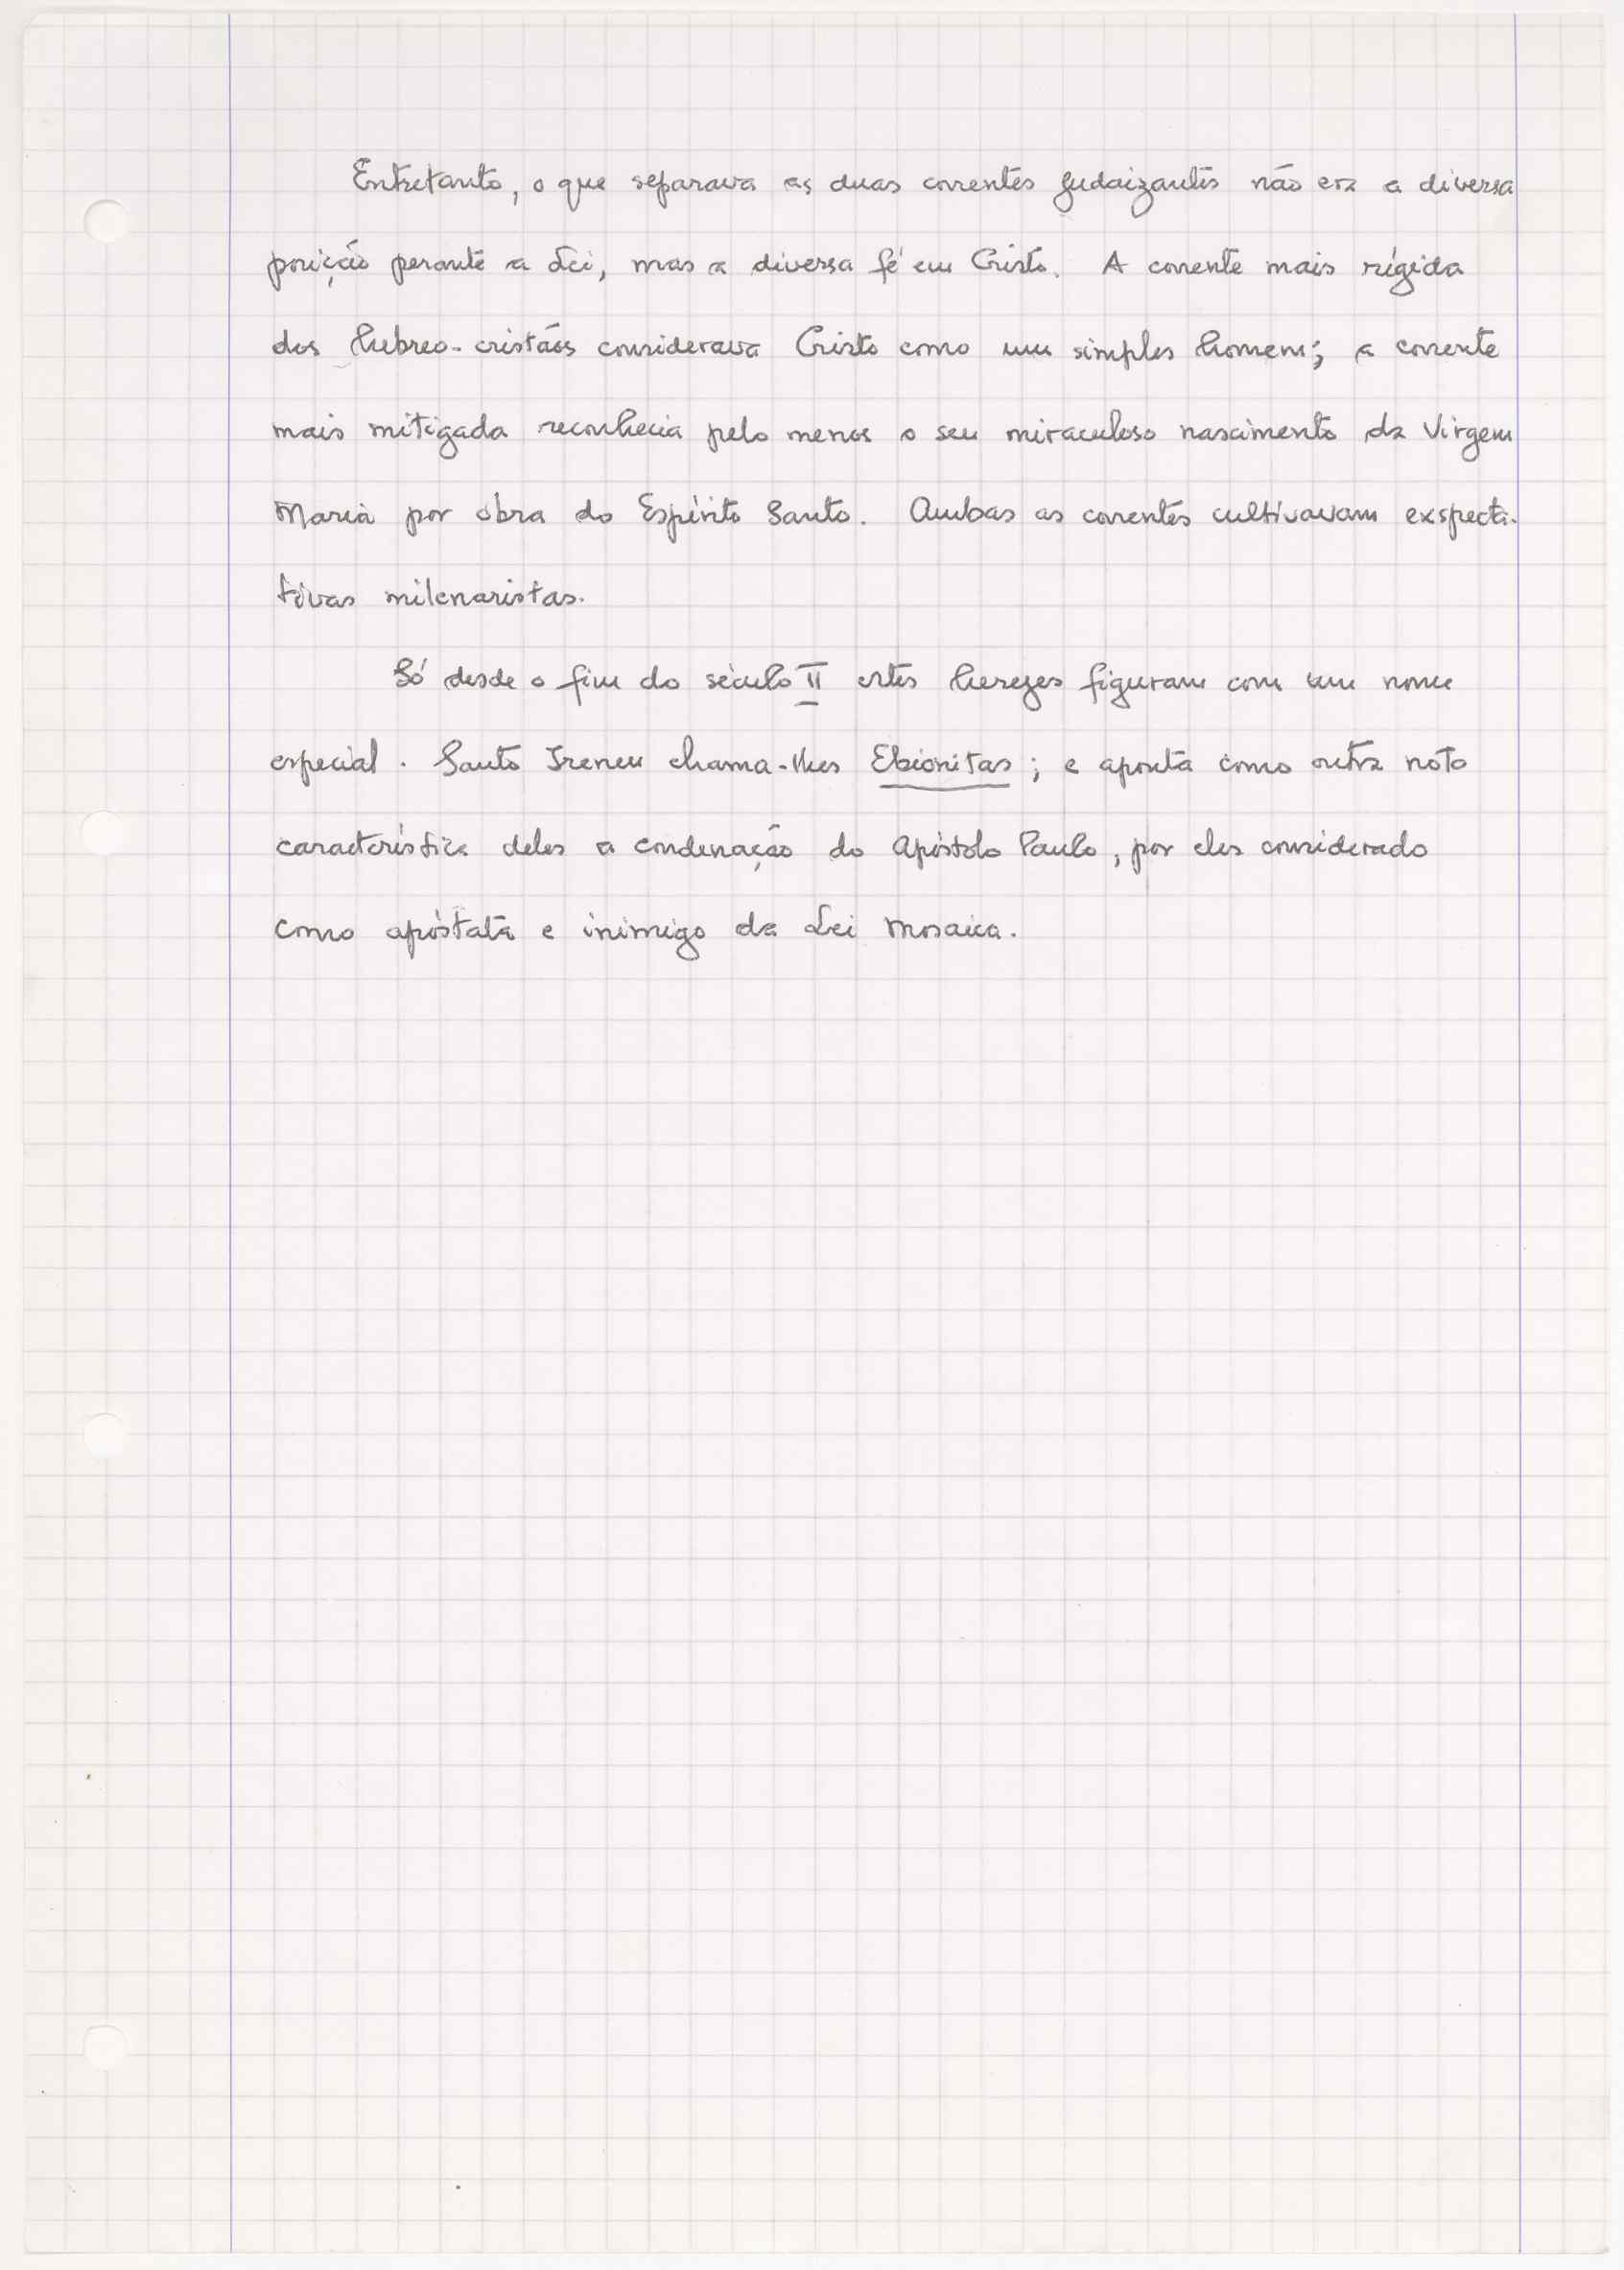 Entretanto, o que separava as duas correntes judaizantes não era a diversa
posição perante a Lei, mas a diversa fé em Cristo. A corrente mais rígida
dos hebreo-cristãos considerava Cristo como um simples homem; a corrente
mais mitigada reconhecia pelo menos o seu miraculoso nascimento da Virgem
Maria por obra do Espírito Santo. Ambas as correntes cultivavam exspecta-
tivas milenaristas.
Só desde o fim do século II estes herezes figuram com um nome
especial. Santo Ireneu chama-lhes Ebionitas; e aponta como outra nota
característica deles a condenação do Apóstolo Paulo, por eles considerado
como apóstata e inimigo da Lei Mosaica.